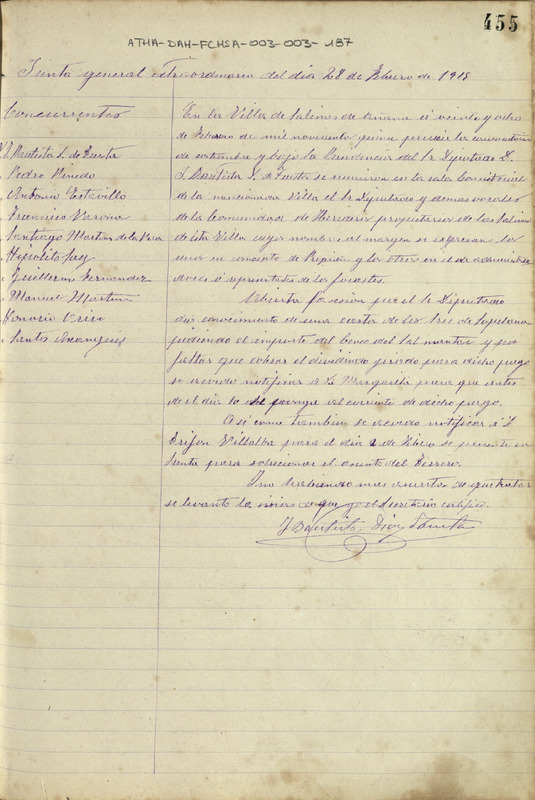 455
ATHA-DAH-FCHSA-003-003-187
Junta general extraordinaria del dia 28 de Febrero de 1915
Concurrentes
J. Bautista D. de Tuesta
Pedro Pinedo
Antonio Estavillo
Francisco Varona
Santiago Martinez de la Pera
Hipolito
Guillermo Fernandez
Manuel Martin
Honorio
Santos Aranguiz
En la Villa de Salinas de Añana á veinte y ocho
de Febrero de mil novecientos quince previa la convocatoria
de costumbre y bajo la Presidencia del Sr Diputado D.
J. Bautista D. de Tuesta se reunieron en la sala Consistorial
de la mencionada Villa el Sr Diputado y demas vocales
de la Comunidad de Herederos propietarios de las Salinas
de esta Villa cuyos nombres al margen se expresan los
unos en concepto de propios y los otros en el de administra
dores ó representantes de los forastes.
Abierta la sesion por el Sr Diputado
dio conocimiento de una carta de los Sres de
pidiendo el importe del de la Sal y por
faltar que cobrar el dividendo girado para dicho pago
se acordo notificar á la para que antes
de el dia 10 se ponga al corriente de dicho pago.
Asi como tambien se acordo notificar á D.
Villalba para el dia de se presente en
Junta para solucionar el asunto del Terrero.
Y no habiendo mas asuntos de que tratar
se levanto la misma de que yo el Secretario certifico.
J Bautista Diaz Tuesta